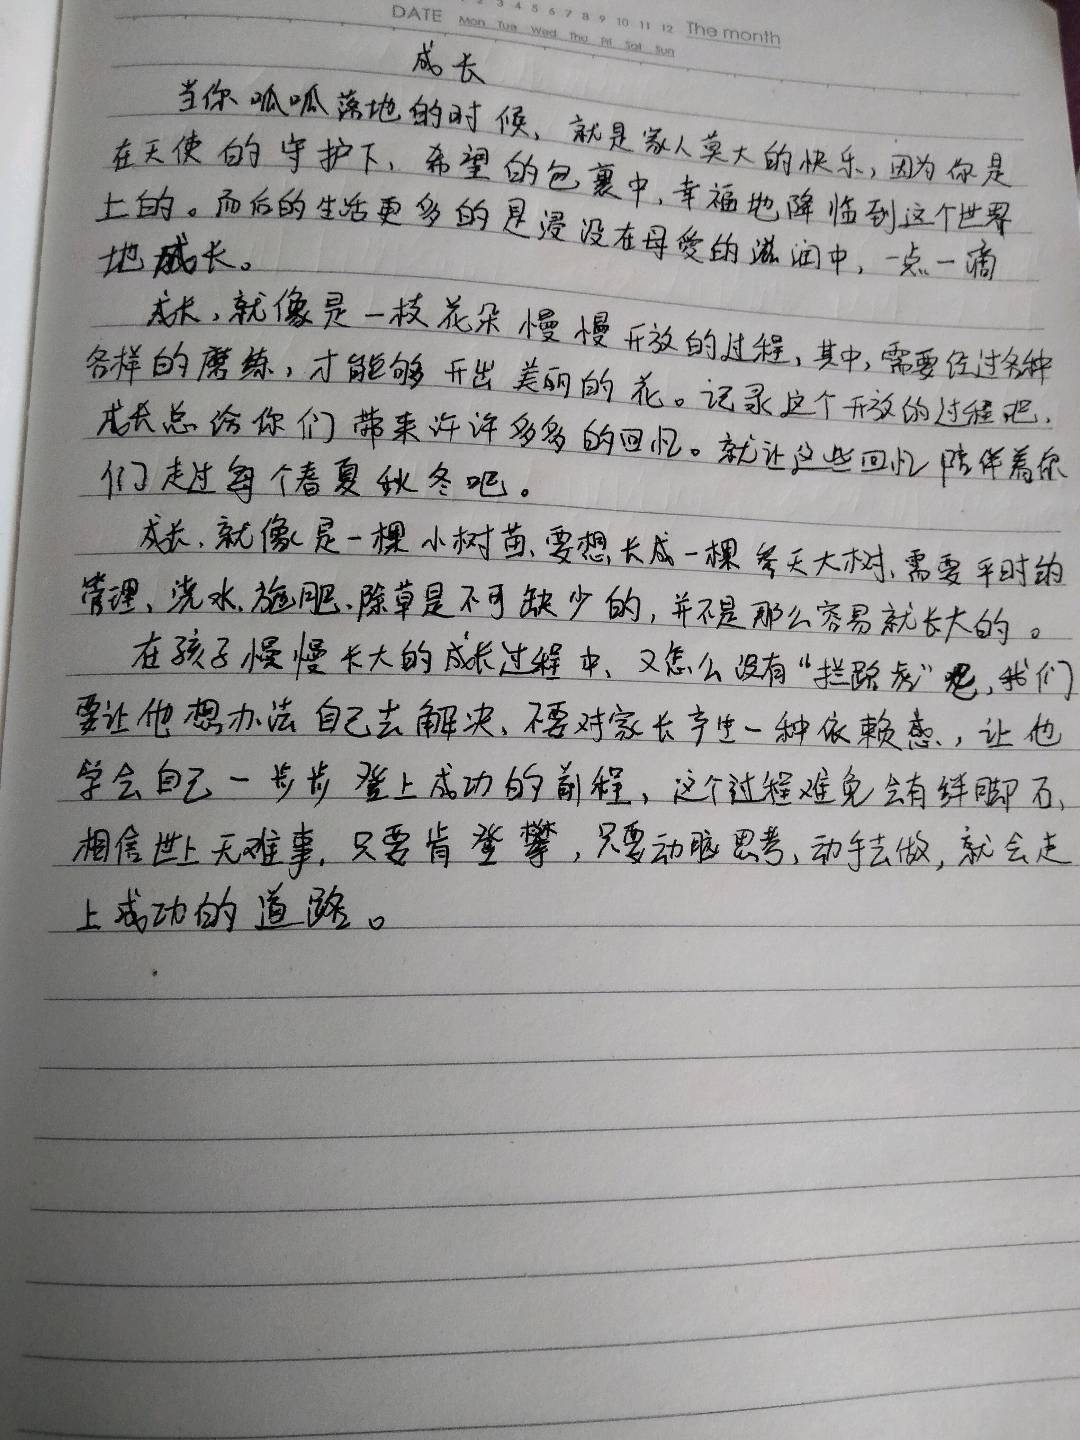 1 2 3 4 5 6 7 8 9 10 11 12 The month
DATE Mon Tue Wed Thu Fri Sat Sun
成长
当你呱呱落地的时候，就是家人莫大的快乐，因为你是
在天使的守护下、希望的包裹中，幸福地降临到这个世界
上的。而后的生活更多的是浸没在母爱的滋润中，一点一滴
地成长。
成长，就像是一枝花朵慢慢开放的过程，其中，需要经过各种
各样的磨练，才能够开出美丽的花。记录这个开放的过程吧，
成长总给你们带来许许多多的回忆。就让这些回忆陪伴着你
们走过每个春夏秋冬吧。
成长，就像是一棵小树苗、要想长成一棵参天大树、需要平时的
管理、浇水、施肥、除草是不可缺少的，并不是那么容易就长大的。
在孩子慢慢长大的成长过程中、又怎么没有“拦路虎”呢，我们
要让他想办法自己去解决、不要对家长产生一种依赖感，让他
学会自己一步步登上成功的前程、这个过程难免会有绊脚石、
相信世上无难事，只要肯登攀，只要动脑思考、动手去做，就会走
上成功的道路。